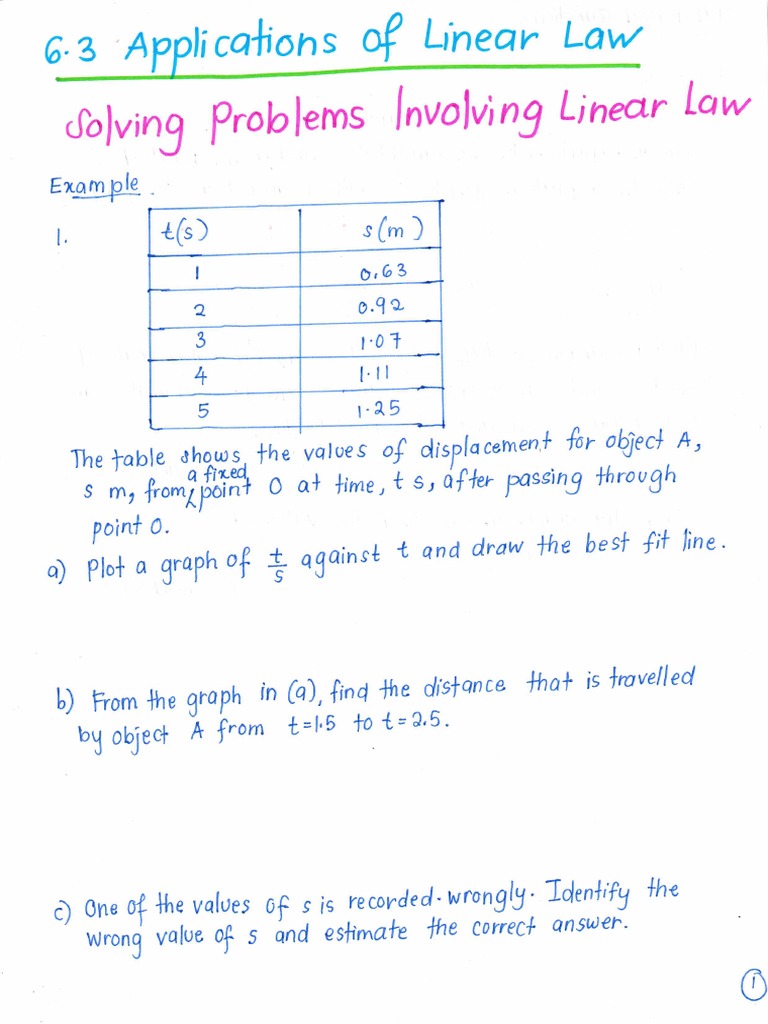 6.3 Applications of Linear Law
Solving Problems Involving Linear Law
Example
1.
t(s) s(m)
1 0.63
2 0.92
3 1.07
4 1.11
5 1.25
The table shows the values of displacement for object A,
s m, from a fixed point O at time, t s, after passing through
point O.
a) Plot a graph of t/s against t and draw the best fit line.
b) From the graph in (a), find the distance that is travelled
by object A from t=1.5 to t=2.5.
c) One of the values of s is recorded wrongly. Identify the
wrong value of s and estimate the correct answer.
1